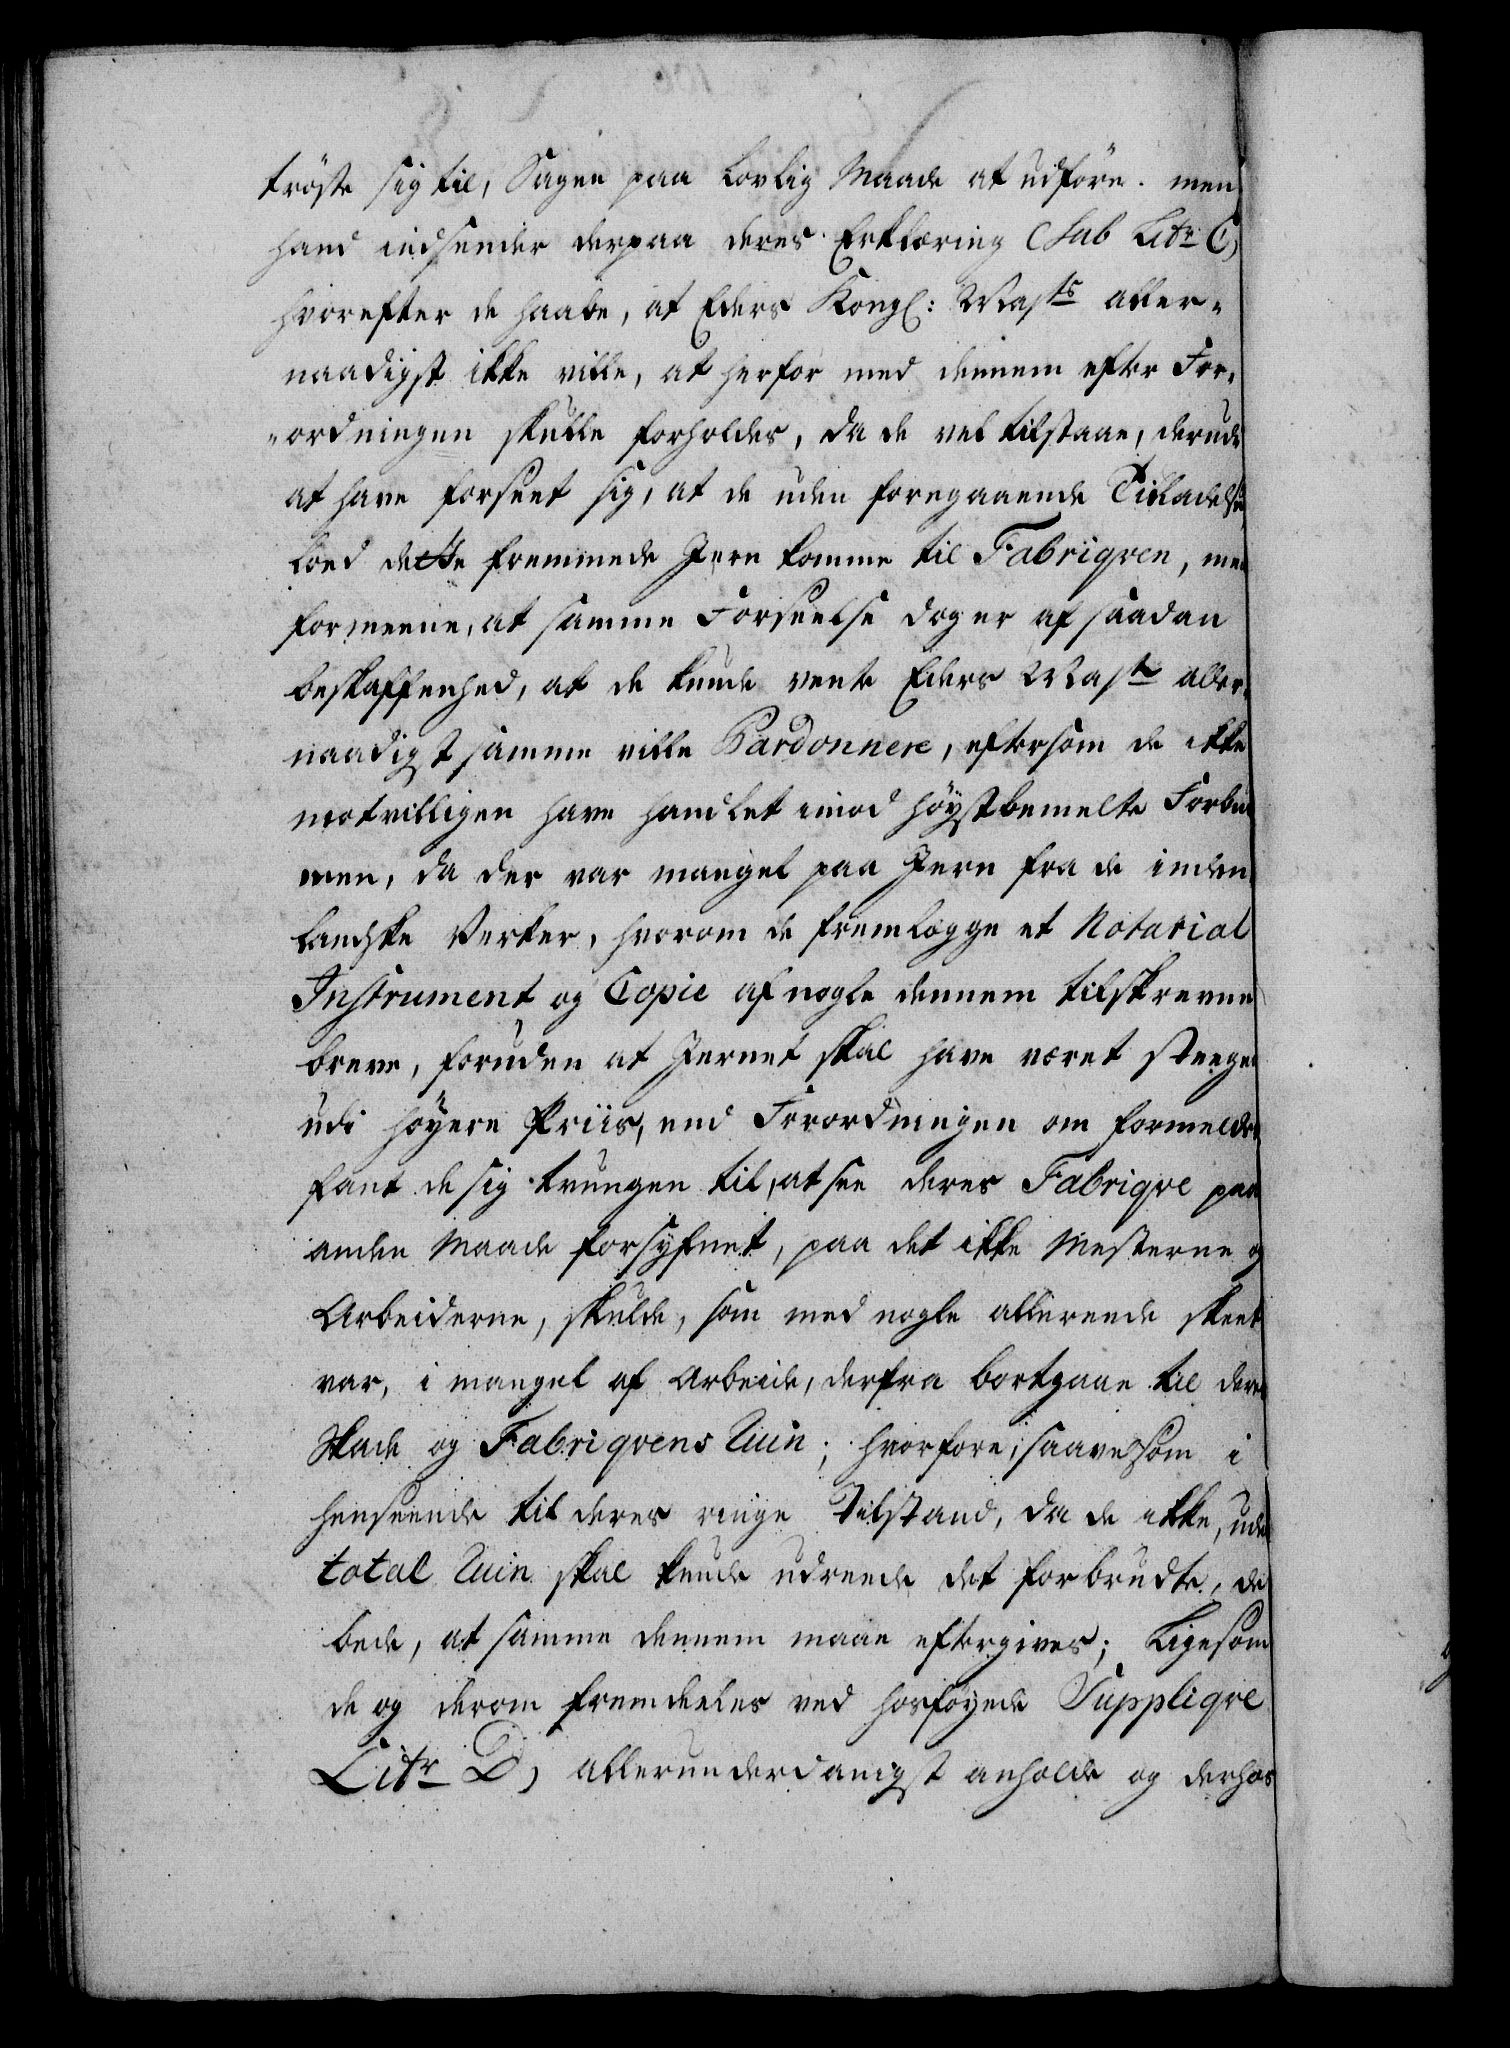 tröste sig til, Sagen paa lovlig Maade at udföre. men
hand indsender derpaa deres Erklæring (Sub Litr C)
hvorefter de haabe, at Eders Kongl: Maysts aller-
naadigst ikke ville, at herfor med dennem efter For-
-ordningen skulle forholdes, da de vel tilstaae, derudi
at have forseet sig, at de uden foregaaende Tilladelse
loed dette fremmede Jern komme til Fabriqven, men
formeene, at samme Forseelse dog er af saadan
beskaffenhed, at de kunde vente Eders Mayst aller-
naadigst samme ville Pardonnere, eftersom de ikke
motvilligen have handlet imod høystbemelte Forbud
men, da der var mangel paa Jern fra de inden-
landske Verker, hvorom de fremlægge et Notarial
Instrument og Copie af nogle dennem tilskrevne
breve, foruden at Jernet skal have været steeget
udi höyere Priis, end Forordningen om formelder
fant de sig tvungen til, at see deres Fabriqve paa
anden Maade forsyfnet, paa det ikke Mesterne og
Arbeiderne, skulde, som med nogle allerede skeet
var, i mangel af Arbeide, derfra bortgaae til deres
Skade og Fabriqvens Ruin; hvorfore, saavelsom i
henseende til deres ringe Tilstand, da de ikke, uden
total Ruin skal kunde udreede det forbrudte, de
bede, at samme dennem maae eftergives; Ligesom
de og derom fremdeeles ved hosföyede Suppliqve
Litr D) allerunderdanigst anholde og derhos